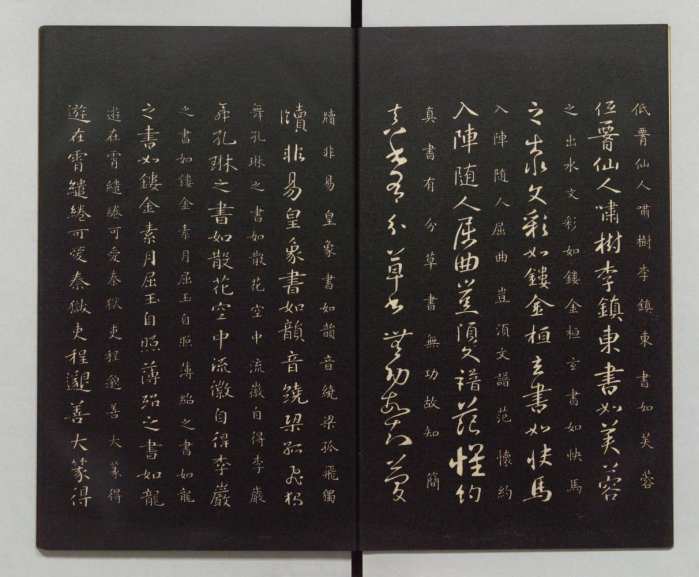 低罾仙人嘯樹李鎮東書如芙蓉
低罾仙人嘯樹李鎮東書如芙蓉
之出水文彩如鏤金桓玄書如快馬
之出水文彩如鏤金桓玄書如快馬
入陣隨人屈曲豈須文譜范懷約
入陣随人屈曲豈須文譜范懐約
真書有分草書無功故知簡
真書有分草書無功故知簡
牘非易皇象書如韻音繞梁孤飛獨
牘非易皇象書如韻音繞梁孤飛獨
舞孔琳之書如散花空中流徽自得李巖
舞孔琳之書如散花空中流徽自得李巖
之書如鏤金素月屈玉自照薄紹之書如龍
之書如鏤金素月屈玉自照薄紹之書如龍
遊在霄繾綣可愛秦獄吏程邈善大篆得
遊在霄繾綣可愛秦獄吏程邈善大篆得